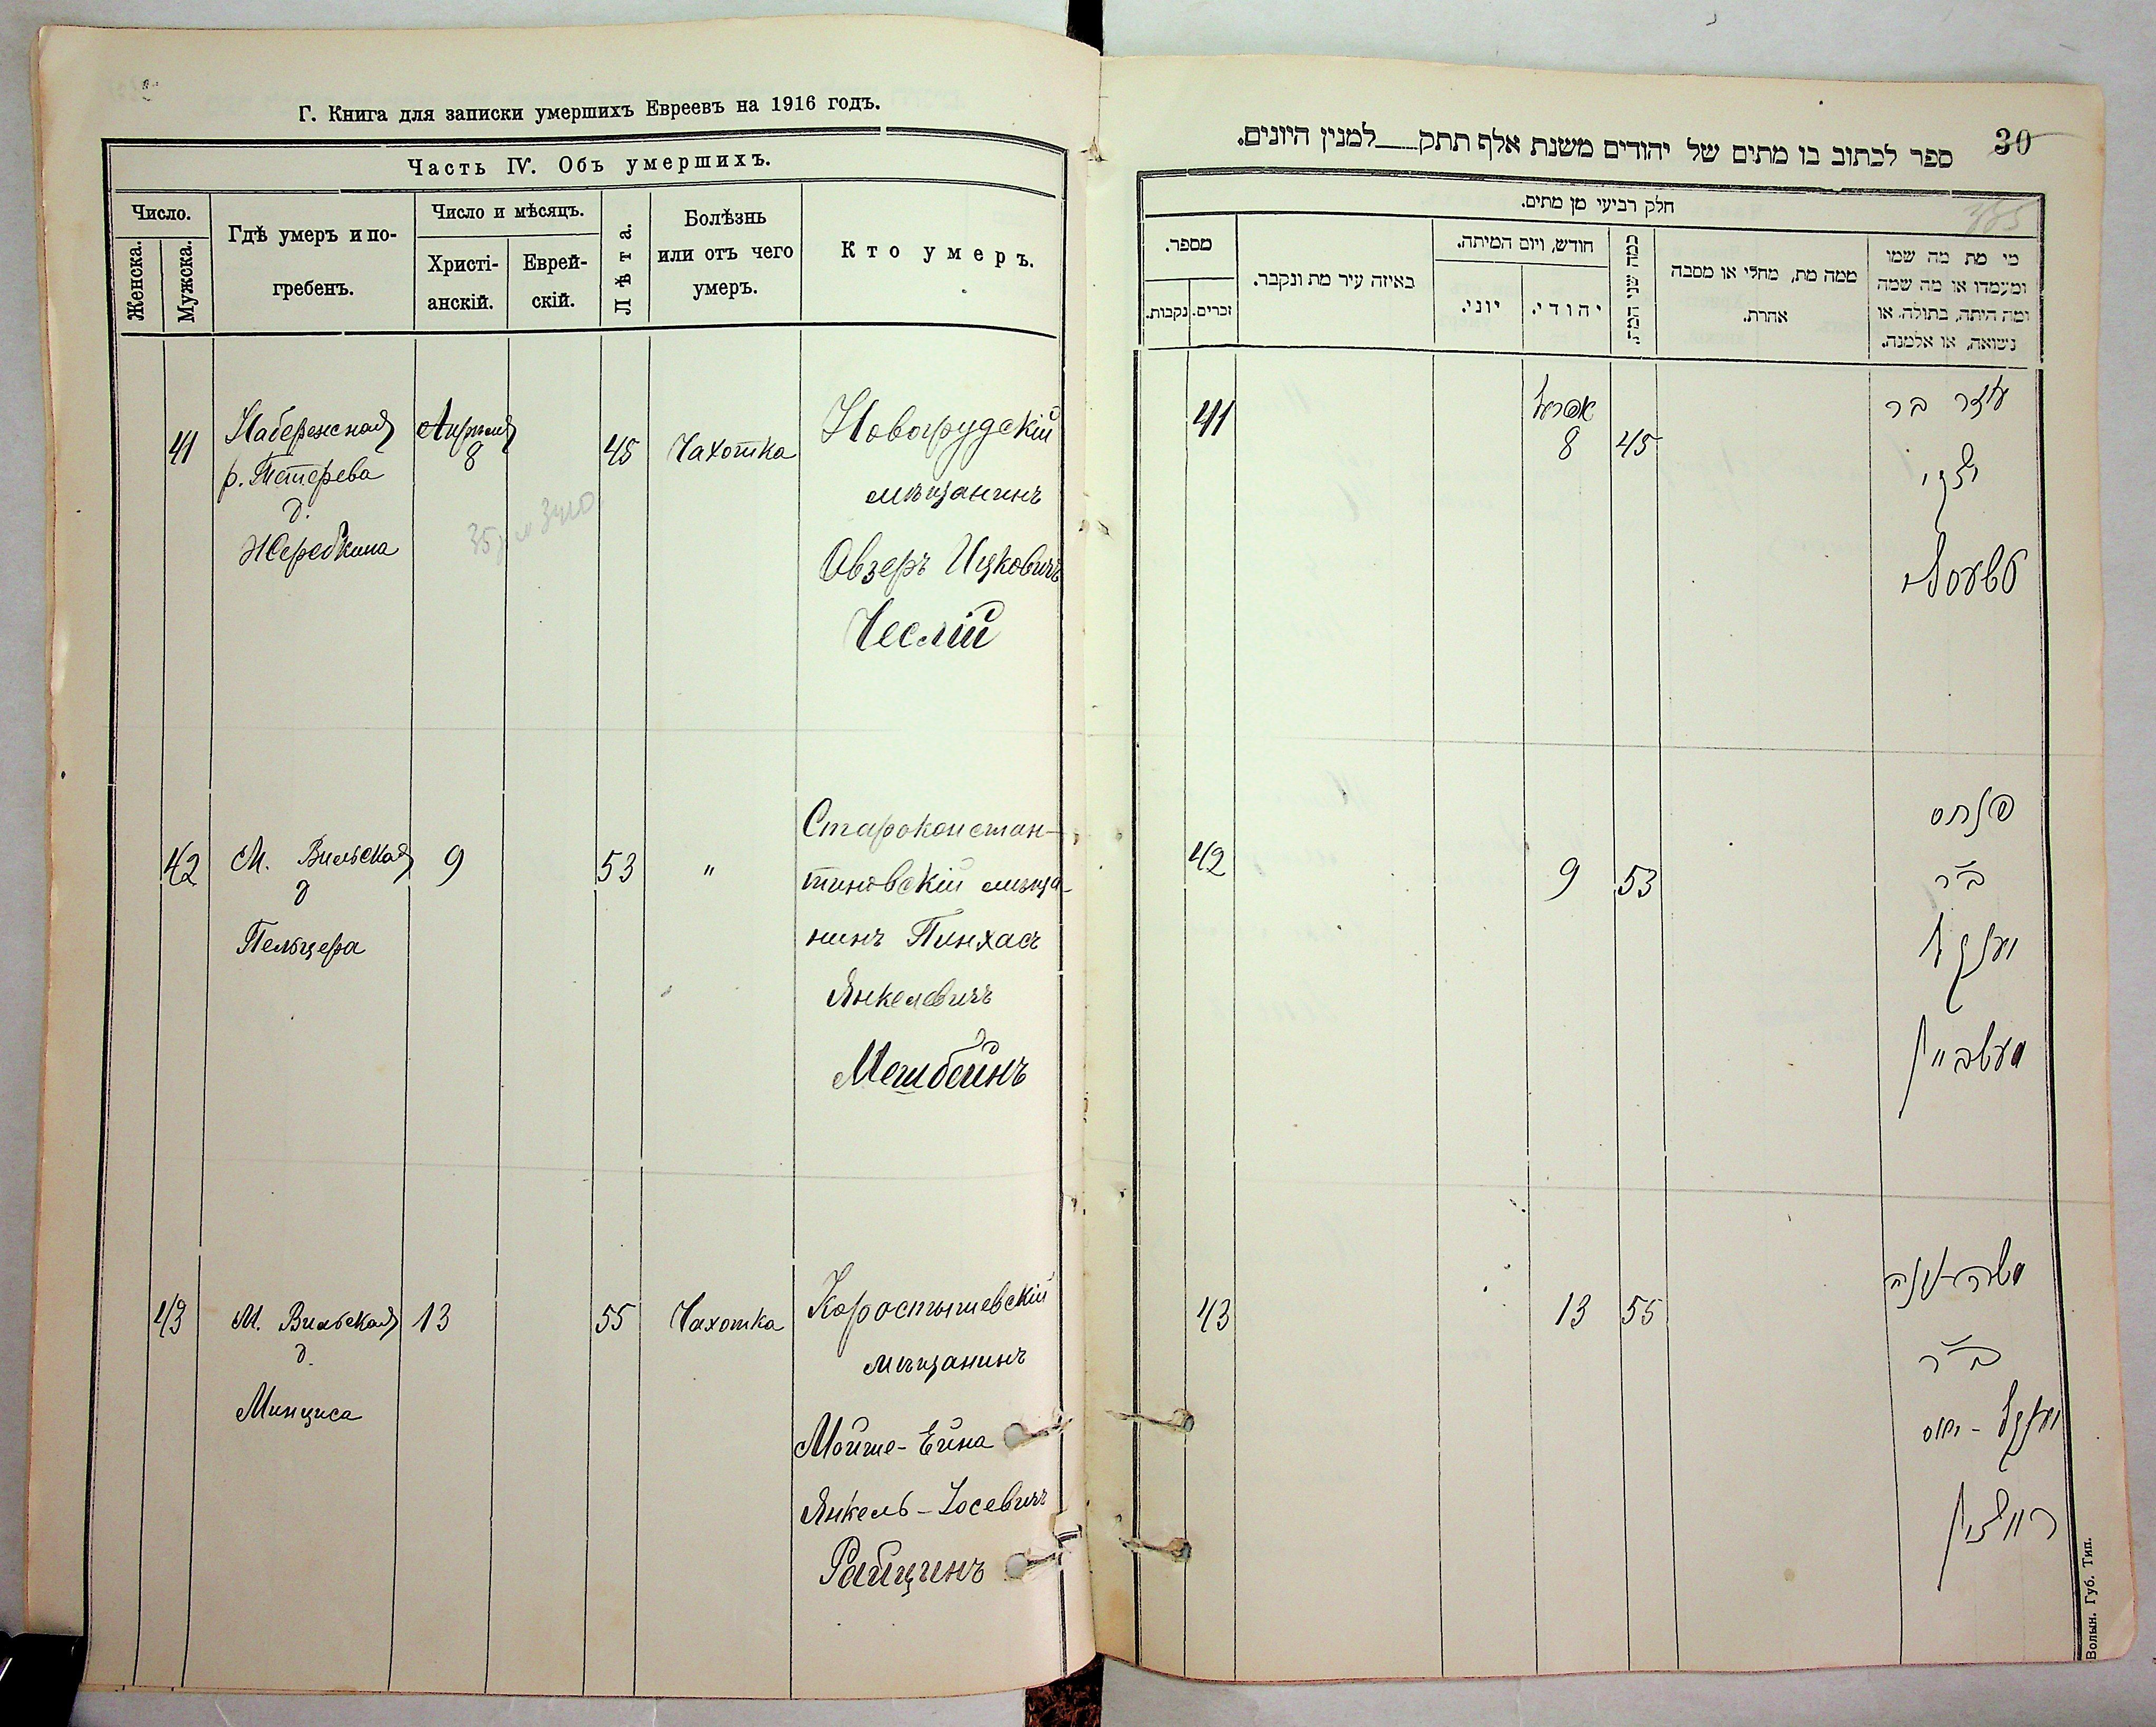 Г. Книга для записки умершихъ Евреевъ на 1916 годъ.
Часть IV. Объ умершихъ.
Число.
Женска.
Мужска.
Гдѣ умеръ и по-
гребенъ.
Число и мѣсяцъ.
Христі-
анскій.
Еврей-
скій.
Лѣта.
Болѣзнь
или отъ чего
умеръ.
Кто умеръ.
41
Набережная
р. Тетерева
д.
Жеребкина
Апрѣля
8
45
Чахотка
Новогрудскій
мѣщанинъ
Овзеръ Ицковичъ
Чеслій
42
М. Вильская
д
Пельцера
9
53
"
Староконстан-
тиновскій мѣща-
нинъ Пинхасъ
Янкелевичъ
Мешбейнъ
43
М. Вильская
д.
Минциса
13
55
Чахотка
Коростышевскій
мѣщанинъ
Мойше-Ейна
Янкель-Іосевичъ
Райцинъ
30
ספר לכתוב בו מתים של יהודים משנת אלף תתק___למנין היונים.
חלק רביעי מן מתים.
מספר.
נקבות.
זכרים.
באיזה עיר מת ונקבר.
חודש, ויום המיתה.
יוני.
יהודי.
כמה שני המת.
ממה מת, מחלי או מסבה
אחרת.
מי מת מה שמו
ומעמדו או מה שמה
ומה היתה, בתולה או
נשואה, או אלמנה.
41
אפריל
8
45
עוזר בר
42
9
53
פנחס
ב"ר
יאנקל
מעשביין
43
13
55
ב"ר
יאנקל - יוס
רייצין
Волын. Губ. Тип.